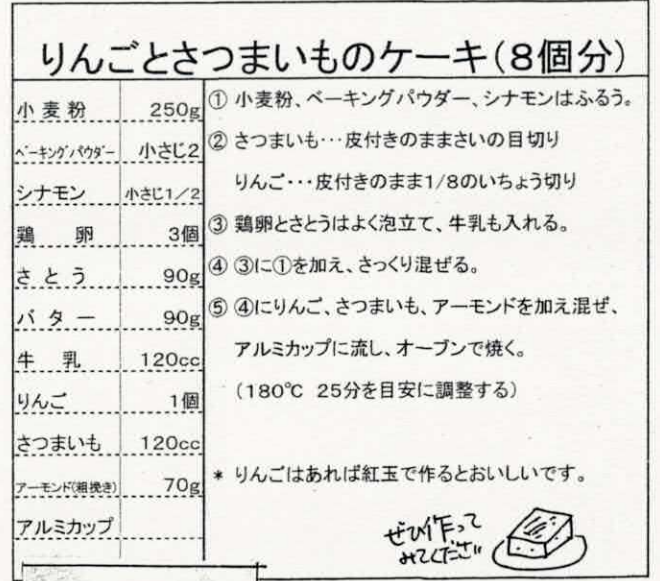 りんごとさつまいものケーキ(8個分)
小麦粉 250g
ベーキングパウダー 小さじ2
シナモン 小さじ1/2
鶏卵 3個
さとう 90g
バター 90g
牛乳 120cc
りんご 1個
さつまいも 120cc
アーモンド(粗挽き) 70g
アルミカップ
① 小麦粉、ベーキングパウダー、シナモンはふるう。
② さつまいも…皮付きのままさいの目切り
りんご…皮付きのまま1/8のいちょう切り
③ 鶏卵とさとうはよく泡立て、牛乳も入れる。
④ ③に①を加え、さっくり混ぜる。
⑤ ④にりんご、さつまいも、アーモンドを加え混ぜ、
アルミカップに流し、オーブンで焼く。
(180℃ 25分を目安に調整する)
* りんごはあれば紅玉で作るとおいしいです。
ぜひ作って
みてください